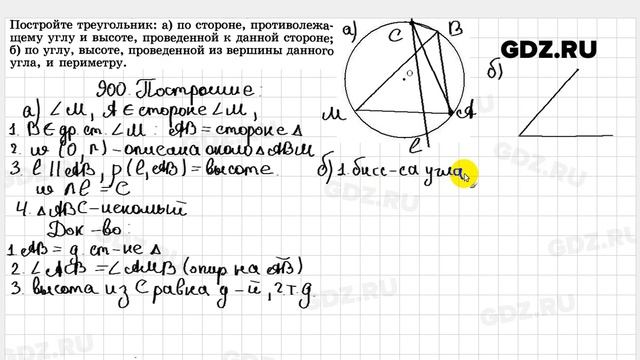 Постройте треугольник: а) по стороне, противолежа-
щему углу и высоте, проведенной к данной стороне;
б) по углу, высоте, проведенной из вершины данного
угла, и периметру.
900. Построение:
а) ∠M, A ∈ стороне ∠M,
1. B ∈ др. ст. ∠M : AB = стороне Δ
2. w (O, r) – описана около ΔABM
3. l || AB, p(l, AB) = высоте.
w ∩ l = C
4. ΔABC – искомый
Док-во:
1. AB = д. ст-не Δ
2. ∠ACB = ∠AMB (опир на AB)
3. высота из C равна д-й, ч.т.д.
а)
C
B
O
M
A
l
GDZ.RU
б)
б) 1. бисс-са угла
GDZ.RU
GDZ.RU
GDZ.RU
GDZ.RU